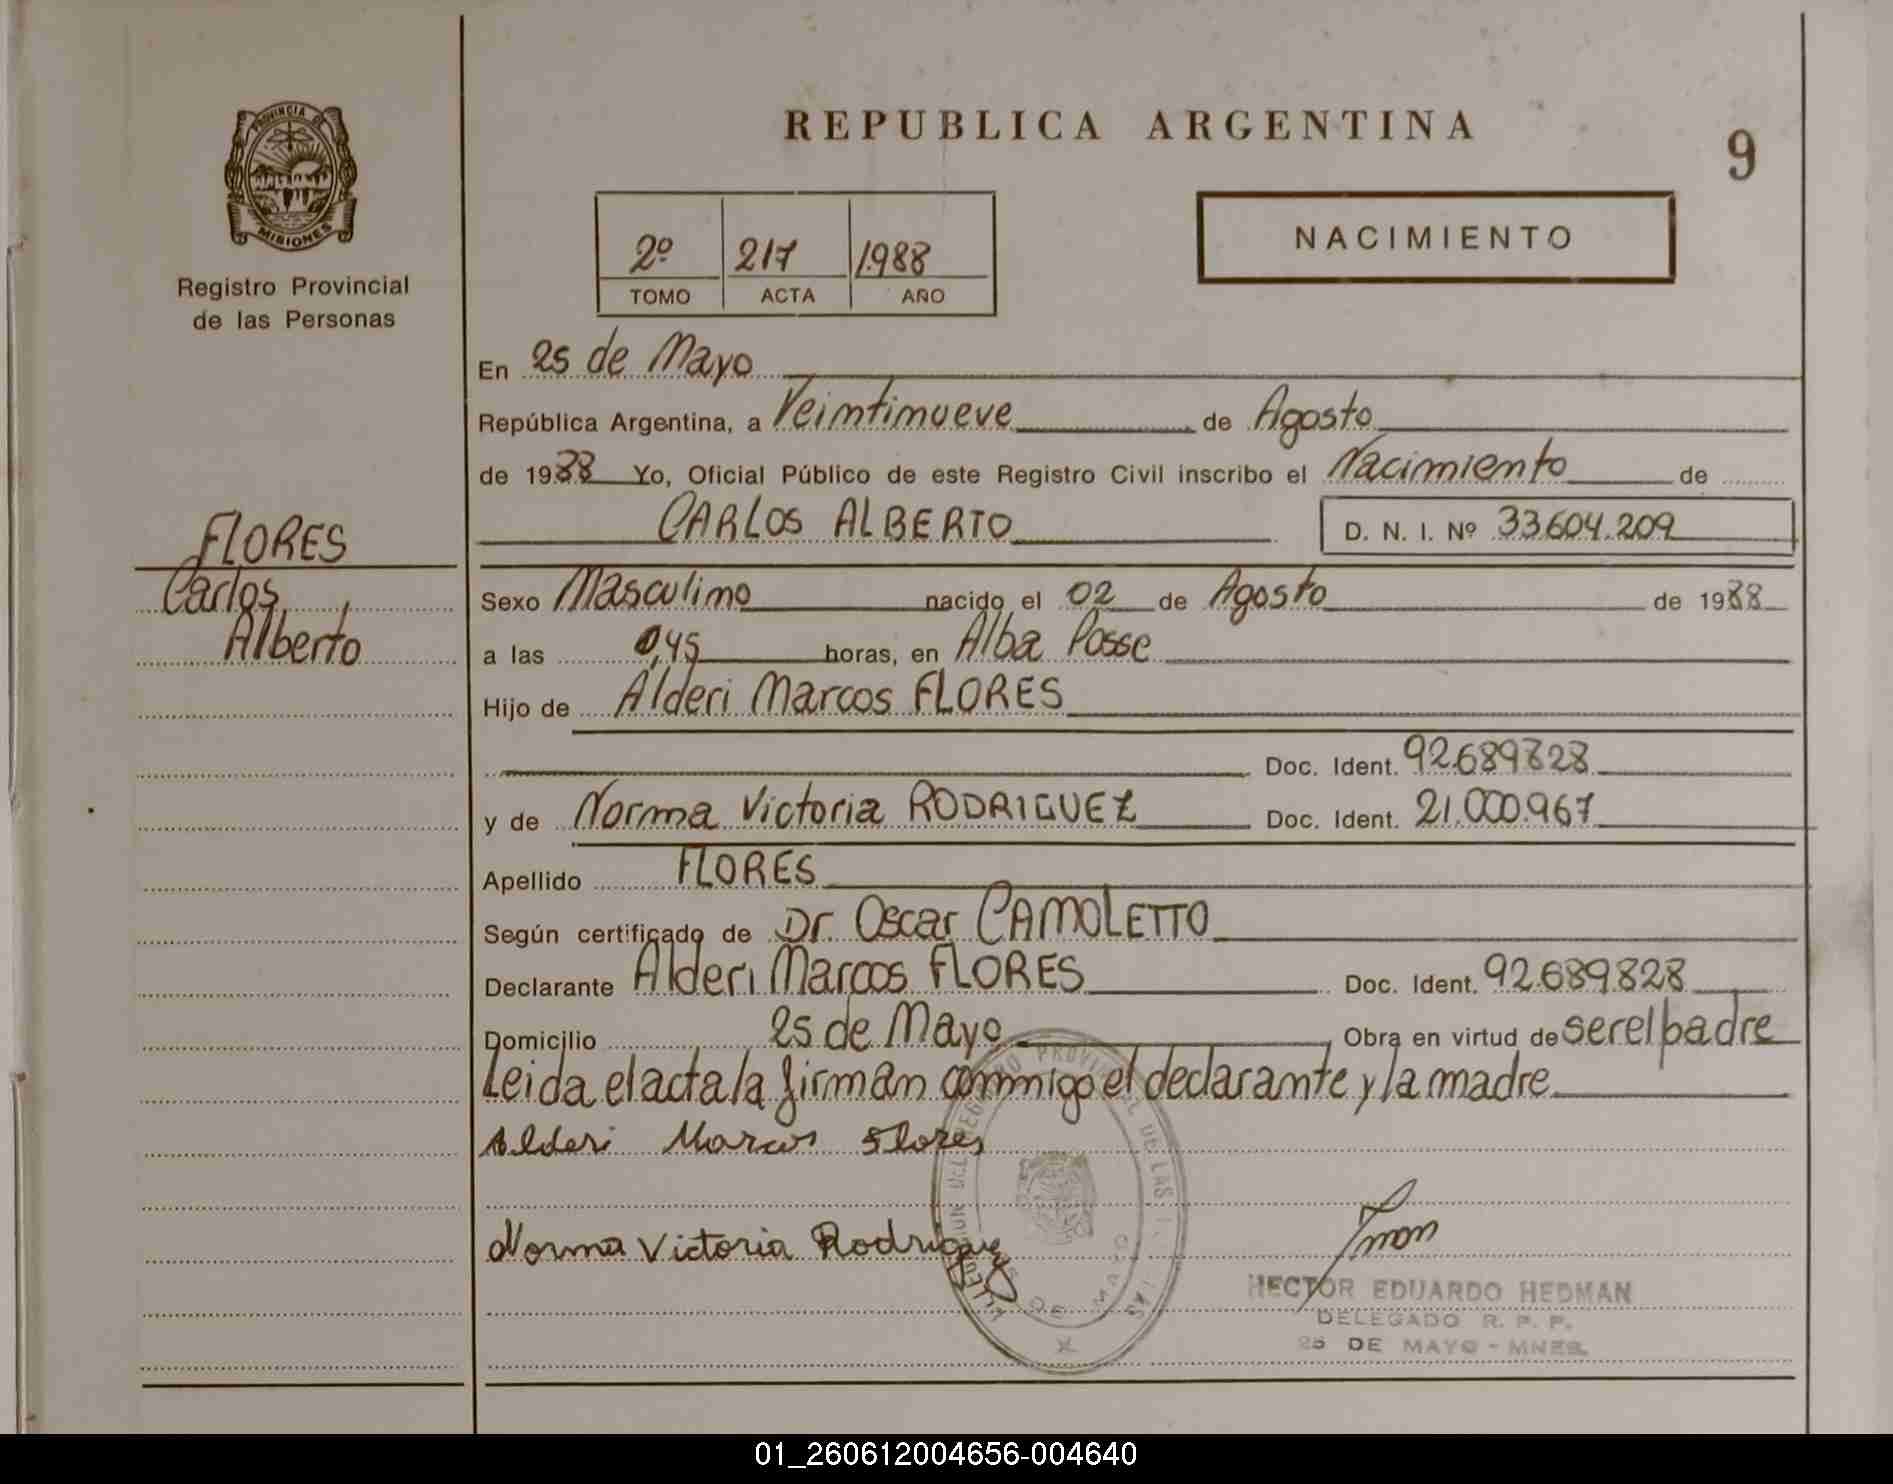 PROVINCIA DE
MISIONES
Registro Provincial
de las Personas
REPUBLICA ARGENTINA
9
2º 217 1988
TOMO ACTA AÑO
NACIMIENTO
En 25 de Mayo
República Argentina, a Veintinueve de Agosto
de 1988 Yo, Oficial Público de este Registro Civil inscribo el Nacimiento de
CARLOS ALBERTO D. N. I. Nº 33.604.209
FLORES
Carlos
Alberto
Sexo Masculino nacido el 02 de Agosto de 1988
a las 0,45 horas, en Alba Posse
Hijo de Alderi Marcos FLORES
Doc. Ident. 92.689.828
y de Norma Victoria RODRIGUEZ Doc. Ident. 21.000.967
Apellido FLORES
Según certificado de Dr. Oscar CAMOLETTO
Declarante Alderi Marcos FLORES Doc. Ident. 92.689.828
Domicilio 25 de Mayo Obra en virtud de ser el padre
Leida el acta la firman conmigo el declarante y la madre
Alderi Marcos Flores
Norma Victoria Rodriguez
DEL REGISTRO PROVINCIAL DE LAS
DE MAYO
HECTOR EDUARDO HEDMAN
DELEGADO R. P. P.
25 DE MAYO - MNES.
01_260612004656-004640